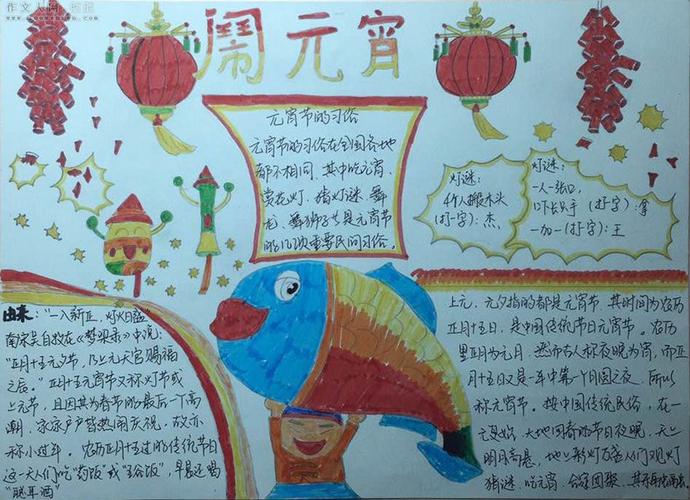 闹元宵
元宵节的习俗
元宵节的习俗在全国各地
都不相同,其中吃元宵、
赏花灯、猜灯谜、舞
龙、舞狮子是元宵节
的几项重要民间习俗。
灯谜:
4个人搬木头
(打一字):杰,
灯谜:
一人一张口,
口下长只手(打一字):拿
一加一(打一字):王
由来:"一入新正,灯火日盛
南宋吴自牧在《梦梁录》中说:
"正月十五元夕节,乃上元天官赐福
之辰。"正月十五元宵节又称灯节或
上元节,且因其为春节的最后一个高
潮,家家户户皆热闹庆祝,故亦
称小过年。农历正月十五过的传统节日
这一天人们吃"药饭"或"五谷饭",早晨还喝
"聪耳酒"
上元、元夕指的都是元宵节,其时间为农历
正月十五日,是中国传统节日元宵节。农历
里正月为元月,然而古人称夜晚为宵,而正
月十五日又是一年中第一个月圆之夜,所以
称元宵节。按中国传统民俗,在一
元复始,大地回春的节日夜晚,天上
明月高悬,地上彩灯万盏,人们观灯
猜谜、吃元宵、合家团聚、其乐融融